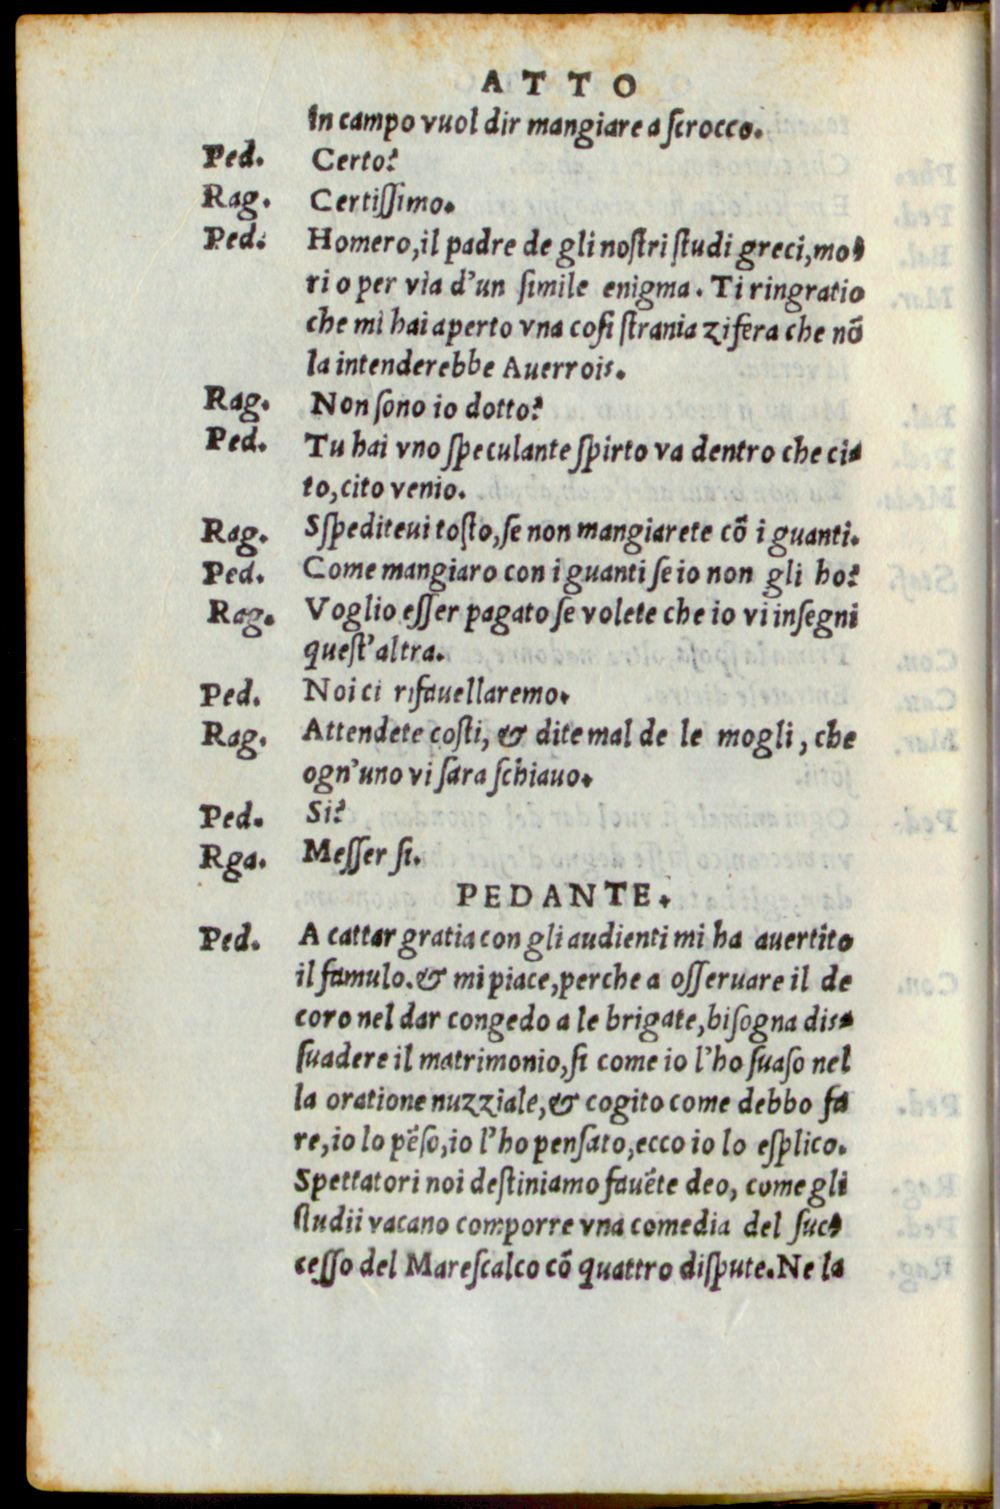 ATTO
In campo vuol dir mangiare a ſcrocco.
Ped. Certo?
Rag. Certiſſimo.
Ped. Homero, il padre de gli noſtri ſtudi greci, mo-
rio per via d'un ſimile enigma. Ti ringratio
che mi hai aperto vna coſi ſtrania zifera che nõ
la intenderebbe Auerrois.
Rag. Non ſono io dotto?
Ped. Tu hai vno ſpeculante ſpirto va dentro che ci-
to, cito venio.
Rag. Sſpediteui toſto, ſe non mangiarete cõ i guanti.
Ped. Come mangiaro con i guanti ſe io non gli ho?
Rag. Voglio eſſer pagato ſe volete che io vi inſegni
queſt'altra.
Ped. Noi ci rifauellaremo.
Rag. Attendete coſti, & dite mal de le mogli, che
ogn'uno vi ſara ſchiauo.
Ped. Si?
Rga. Meſſer ſi.
PEDANTE.
Ped. A cattar gratia con gli audienti mi ha auertito
il famulo. & mi piace, perche a oſſeruare il de
coro nel dar congedo a le brigate, biſogna dis-
ſuadere il matrimonio, ſi come io l'ho ſuaſo nel
la oratione nuzziale, & cogito come debbo fa
re, io lo pẽſo, io l'ho penſato, ecco io lo eſplico.
Spettatori noi deſtiniamo fauẽte deo, come gli
ſtudii vacano comporre vna comedia del ſuc-
ceſſo del Mareſcalco cõ quattro diſpute. Ne la